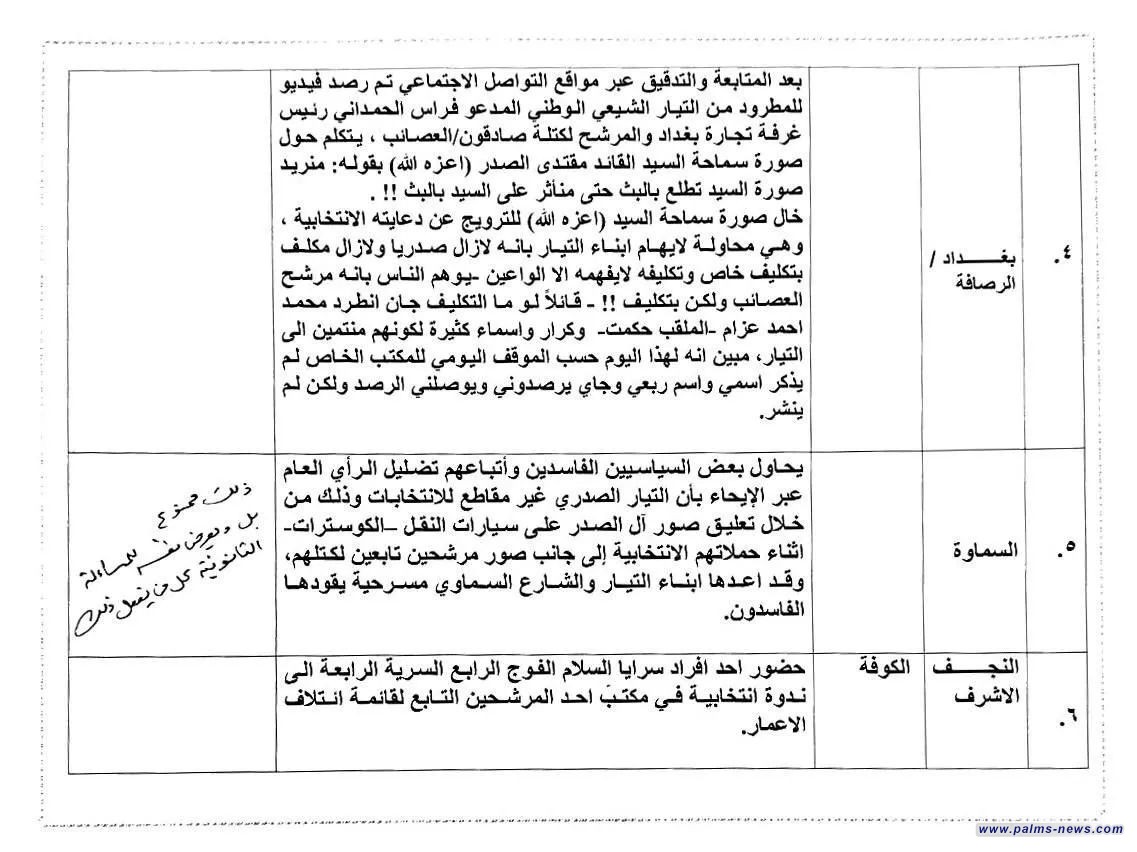 ٤.
بغـــــداد /
الرصافة
بعد المتابعة والتدقيق عبر مواقع التواصل الاجتماعي تم رصد فيديو
للمطرود من التيار الشيعي الوطني المدعو فراس الحمداني رئيس
غرفة تجارة بغداد والمرشح لكتلة صادقون/العصائب ، يتكلم حول
صورة سماحة السيد القائد مقتدى الصدر (اعزه الله) بقوله: منريد
صورة السيد تطلع بالبث حتى منأثر على السيد بالبث !! .
خال صورة سماحة السيد (اعزه الله) للترويج عن دعايته الانتخابية ،
وهي محاولة لايهام ابناء التيار بانه لازال صدريا ولازال مكلف
بتكليف خاص وتكليفه لايفهمه الا الواعين -يوهم الناس بانه مرشح
العصائب ولكن بتكليف !! - قائلاً لو ما التكليف جان انطرد محمد
احمد عزام -الملقب حكمت- وكرار واسماء كثيرة لكونهم منتمين الى
التيار، مبين انه لهذا اليوم حسب الموقف اليومي للمكتب الخاص لم
يذكر اسمي واسم ربعي وجاي يرصدوني ويوصلني الرصد ولكن لم
ينشر.
٥.
السماوة
يحاول بعض السياسيين الفاسدين وأتباعهم تضليل الرأي العام
عبر الإيحاء بأن التيار الصدري غير مقاطع للانتخابات وذلك من
خلال تعليق صور آل الصدر على سيارات النقل -الكوسترات-
اثناء حملاتهم الانتخابية إلى جانب صور مرشحين تابعين لكتلهم،
وقد اعدها ابناء التيار والشارع السماوي مسرحية يقودها
الفاسدون.
ذلك ممنوع
بل ويعرض نفسه للمساءلة
القانونية كل من يفعل ذلك
٦.
النجـــــف
الاشرف
الكوفة
حضور احد افراد سرايا السلام الفوج الرابع السرية الرابعة الى
ندوة انتخابية في مكتب احد المرشحين التابع لقائمة ائتلاف
الاعمار.
www.palms-news.com